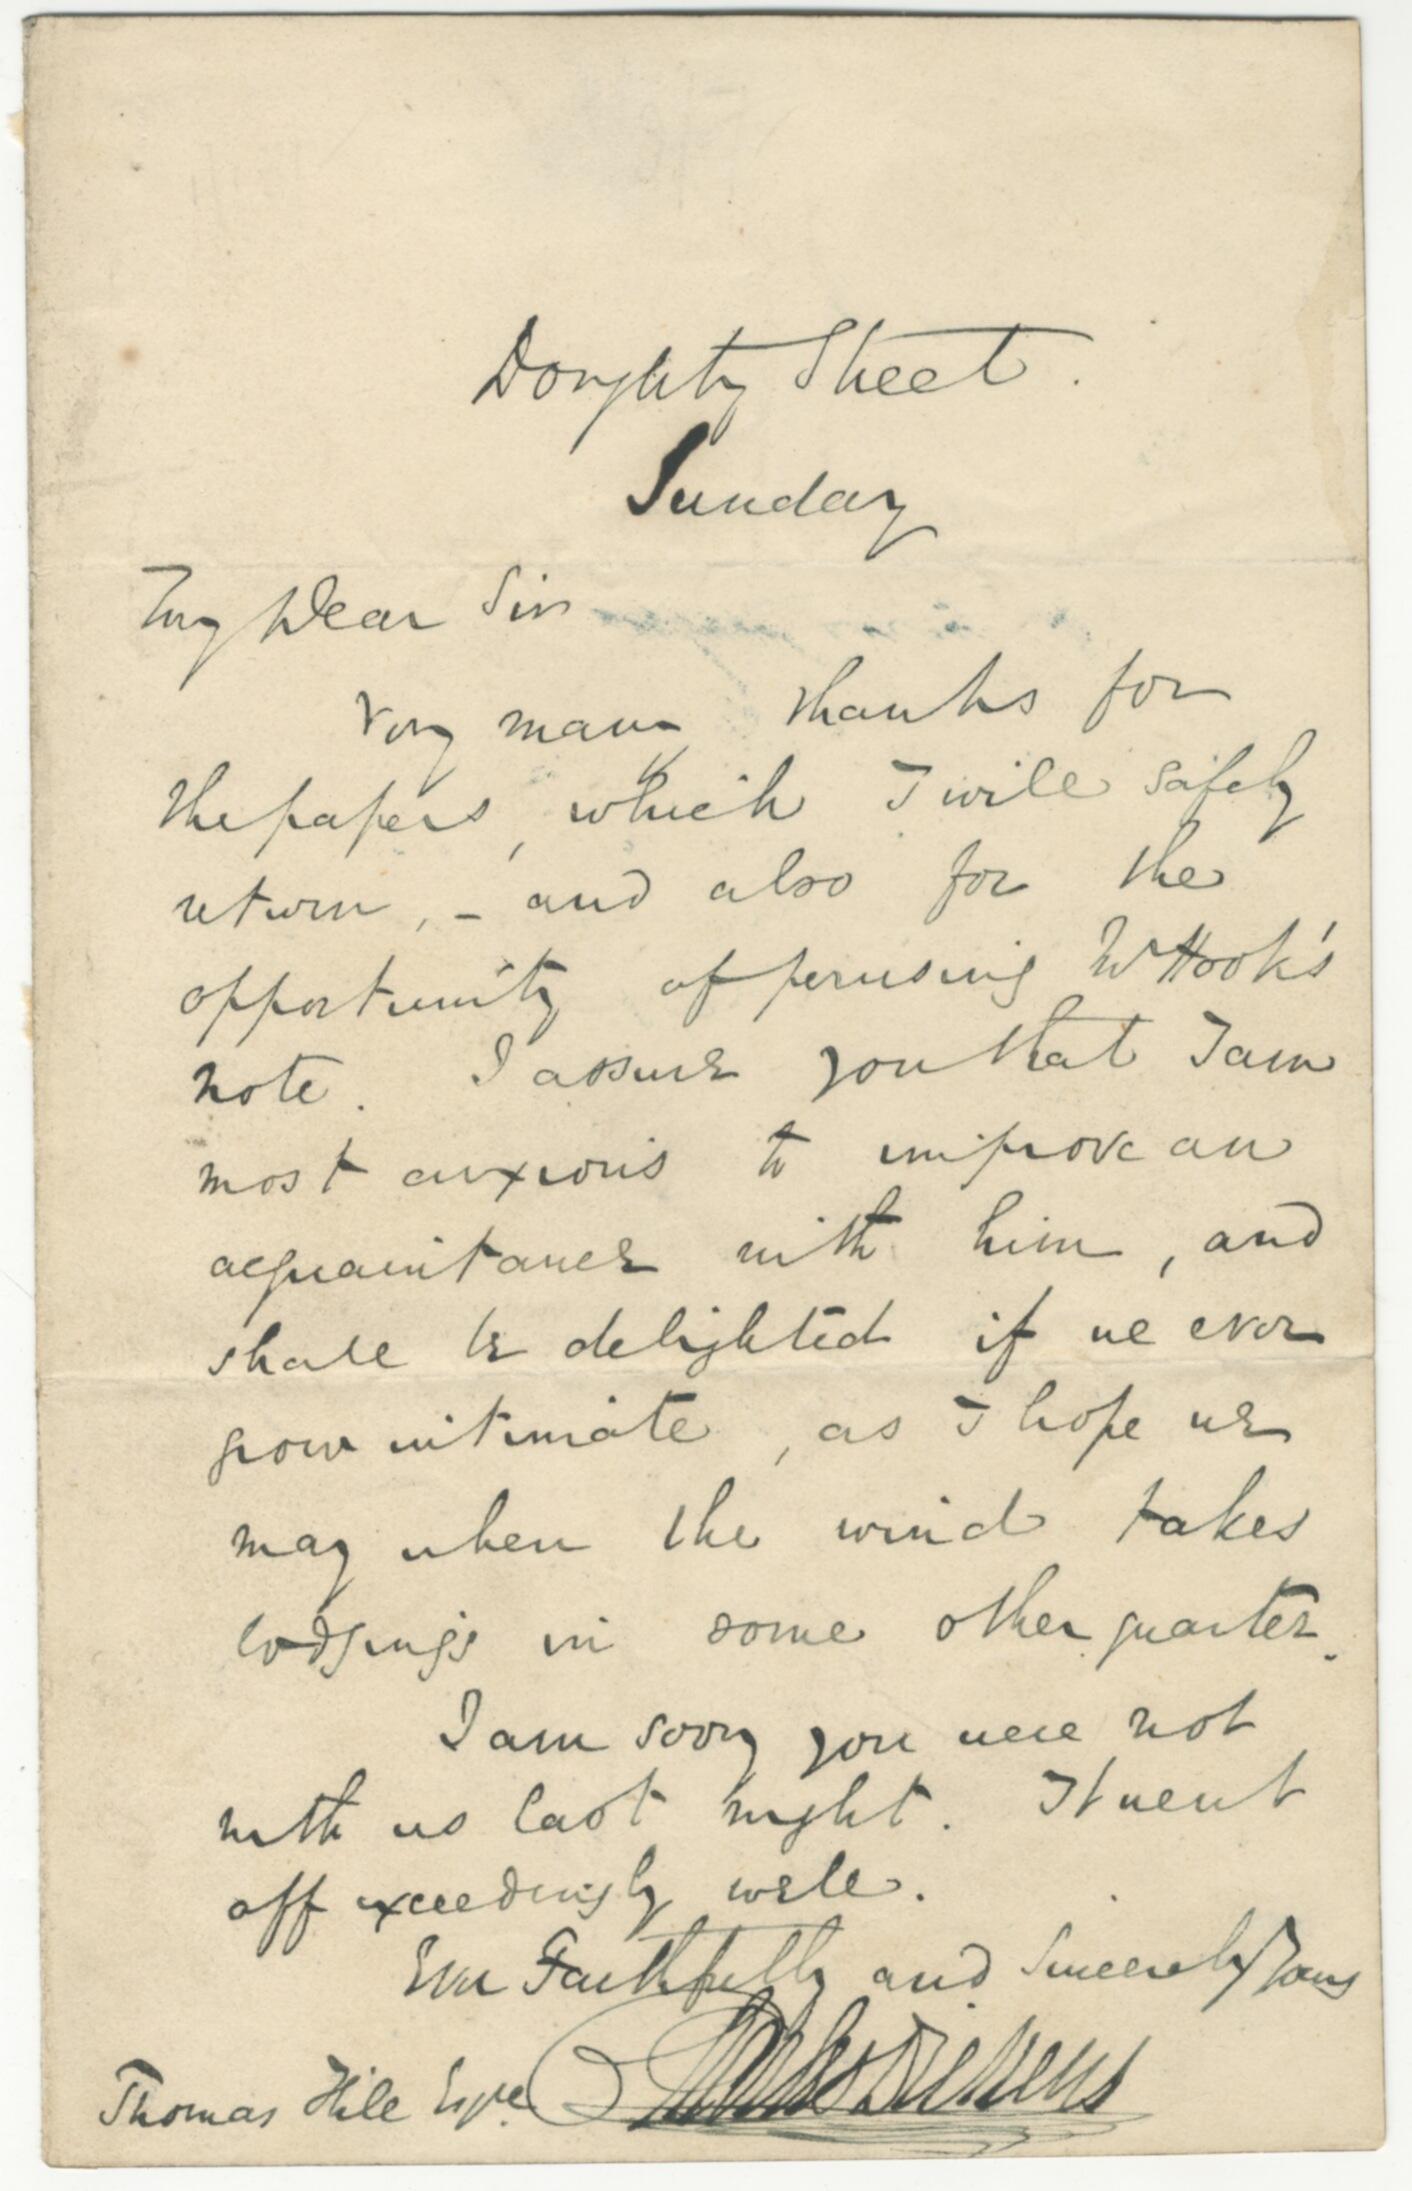 Doughty Street.
Sunday
My Dear Sir
Very many thanks for
the papers, which I will safely
return, - and also for the
opportunity of perusing Mr Hook's
note. I assure you that I am
most anxious to improve an
acquaintance with him, and
shall be delighted if we ever
grow intimate, as I hope we
may when the wind takes
lodgings in some other quarter.
I am sorry you were not
with us last night. It went
off exceedingly well.
Ever Faithfully and Sincerely Yours
Charles Dickens
Thomas Hill Esqre.